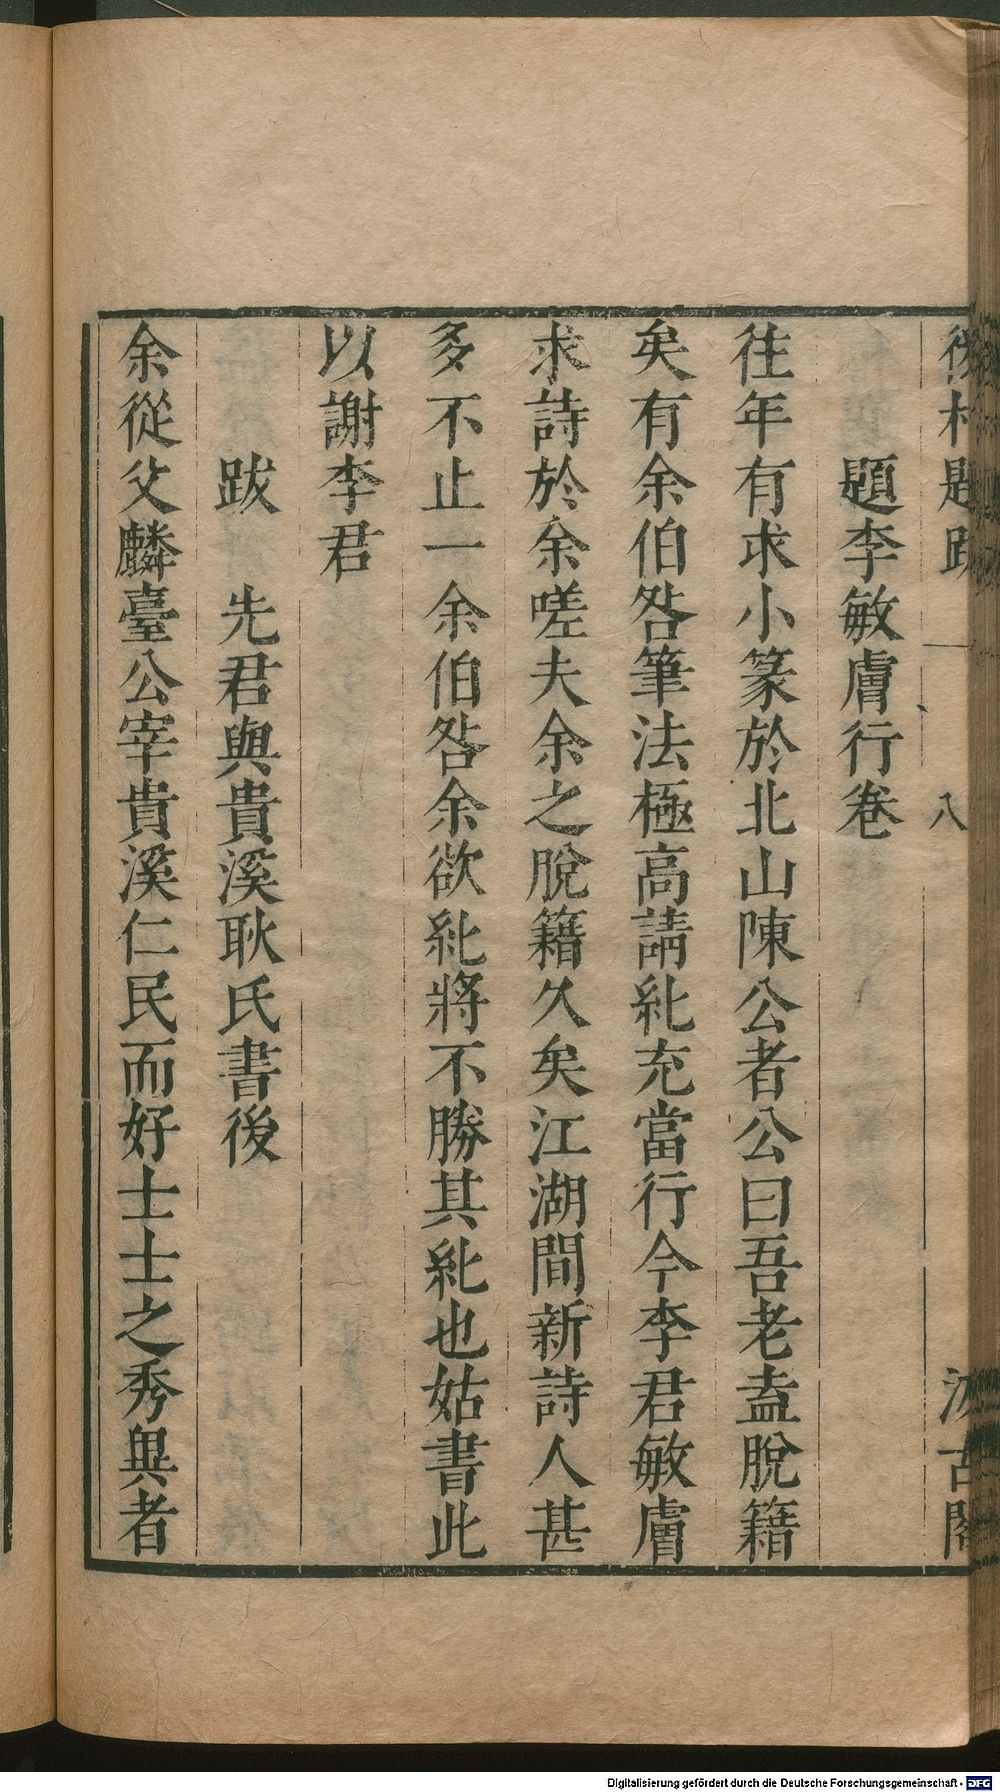 後村題跋 一 八 汲古閣
題李敏膚行卷
往年有求小篆於北山陳公者公曰吾老盍脫籍
矣有余伯明筆法極高請糾充當行今李君敏膚
求詩於余嗟夫余之脫籍久矣江湖間新詩人甚
多不止一余伯明余欲糾將不勝其糾也姑書此
以謝李君
跋 先君與貴溪耿氏書後
余從父麟臺公宰貴溪仁民而好士士之秀異者
Digitalisierung gefördert durch die Deutsche Forschungsgemeinschaft - DFG